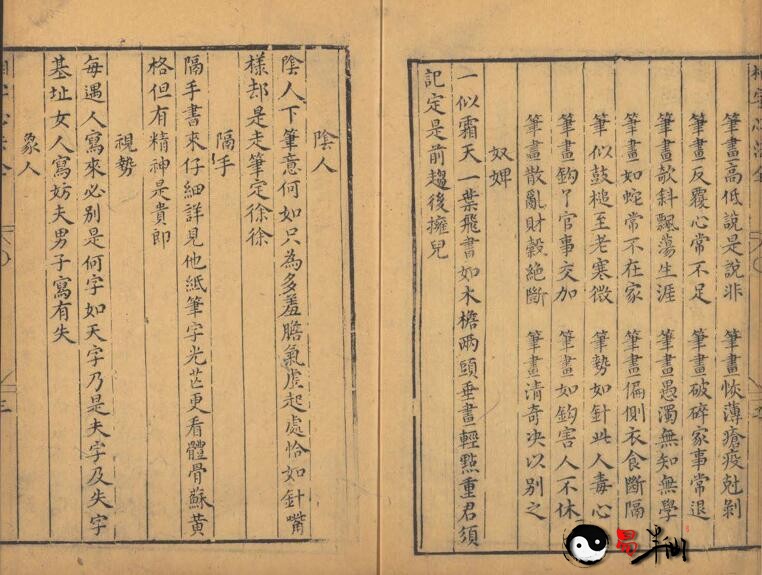 筆畫高低說是說非　筆畫恢薄瘡疫尅剝
筆畫反覆心常不足　筆畫破碎家事常退
筆畫欹斜飄蕩生涯　筆畫愚濁無知無學
筆畫如蛇常不在家　筆畫偏側衣食斷隔
筆似鼓槌至老寒微　筆勢如針此人毒心
筆畫鈎了官事交加　筆畫如鈎害人不休
筆畫散亂財穀絕斷　筆畫清奇决以別之
奴婢
一似霜天一葉飛書如木檐兩頭垂畫輕點重君須
記定是前趨後擁兒
陰人
陰人下筆意何如只為多羞膽氣虛起處恰如針嘴
樣却是走筆定徐徐
隔手
隔手書來仔細詳見他紙筆字光芒更看體骨蘇黃
格但有精神是貴郎
視勢
每遇人寫來必別是何字如天字乃是夫字及失字
基址女人寫妨夫男子寫有失
象人
易半仙